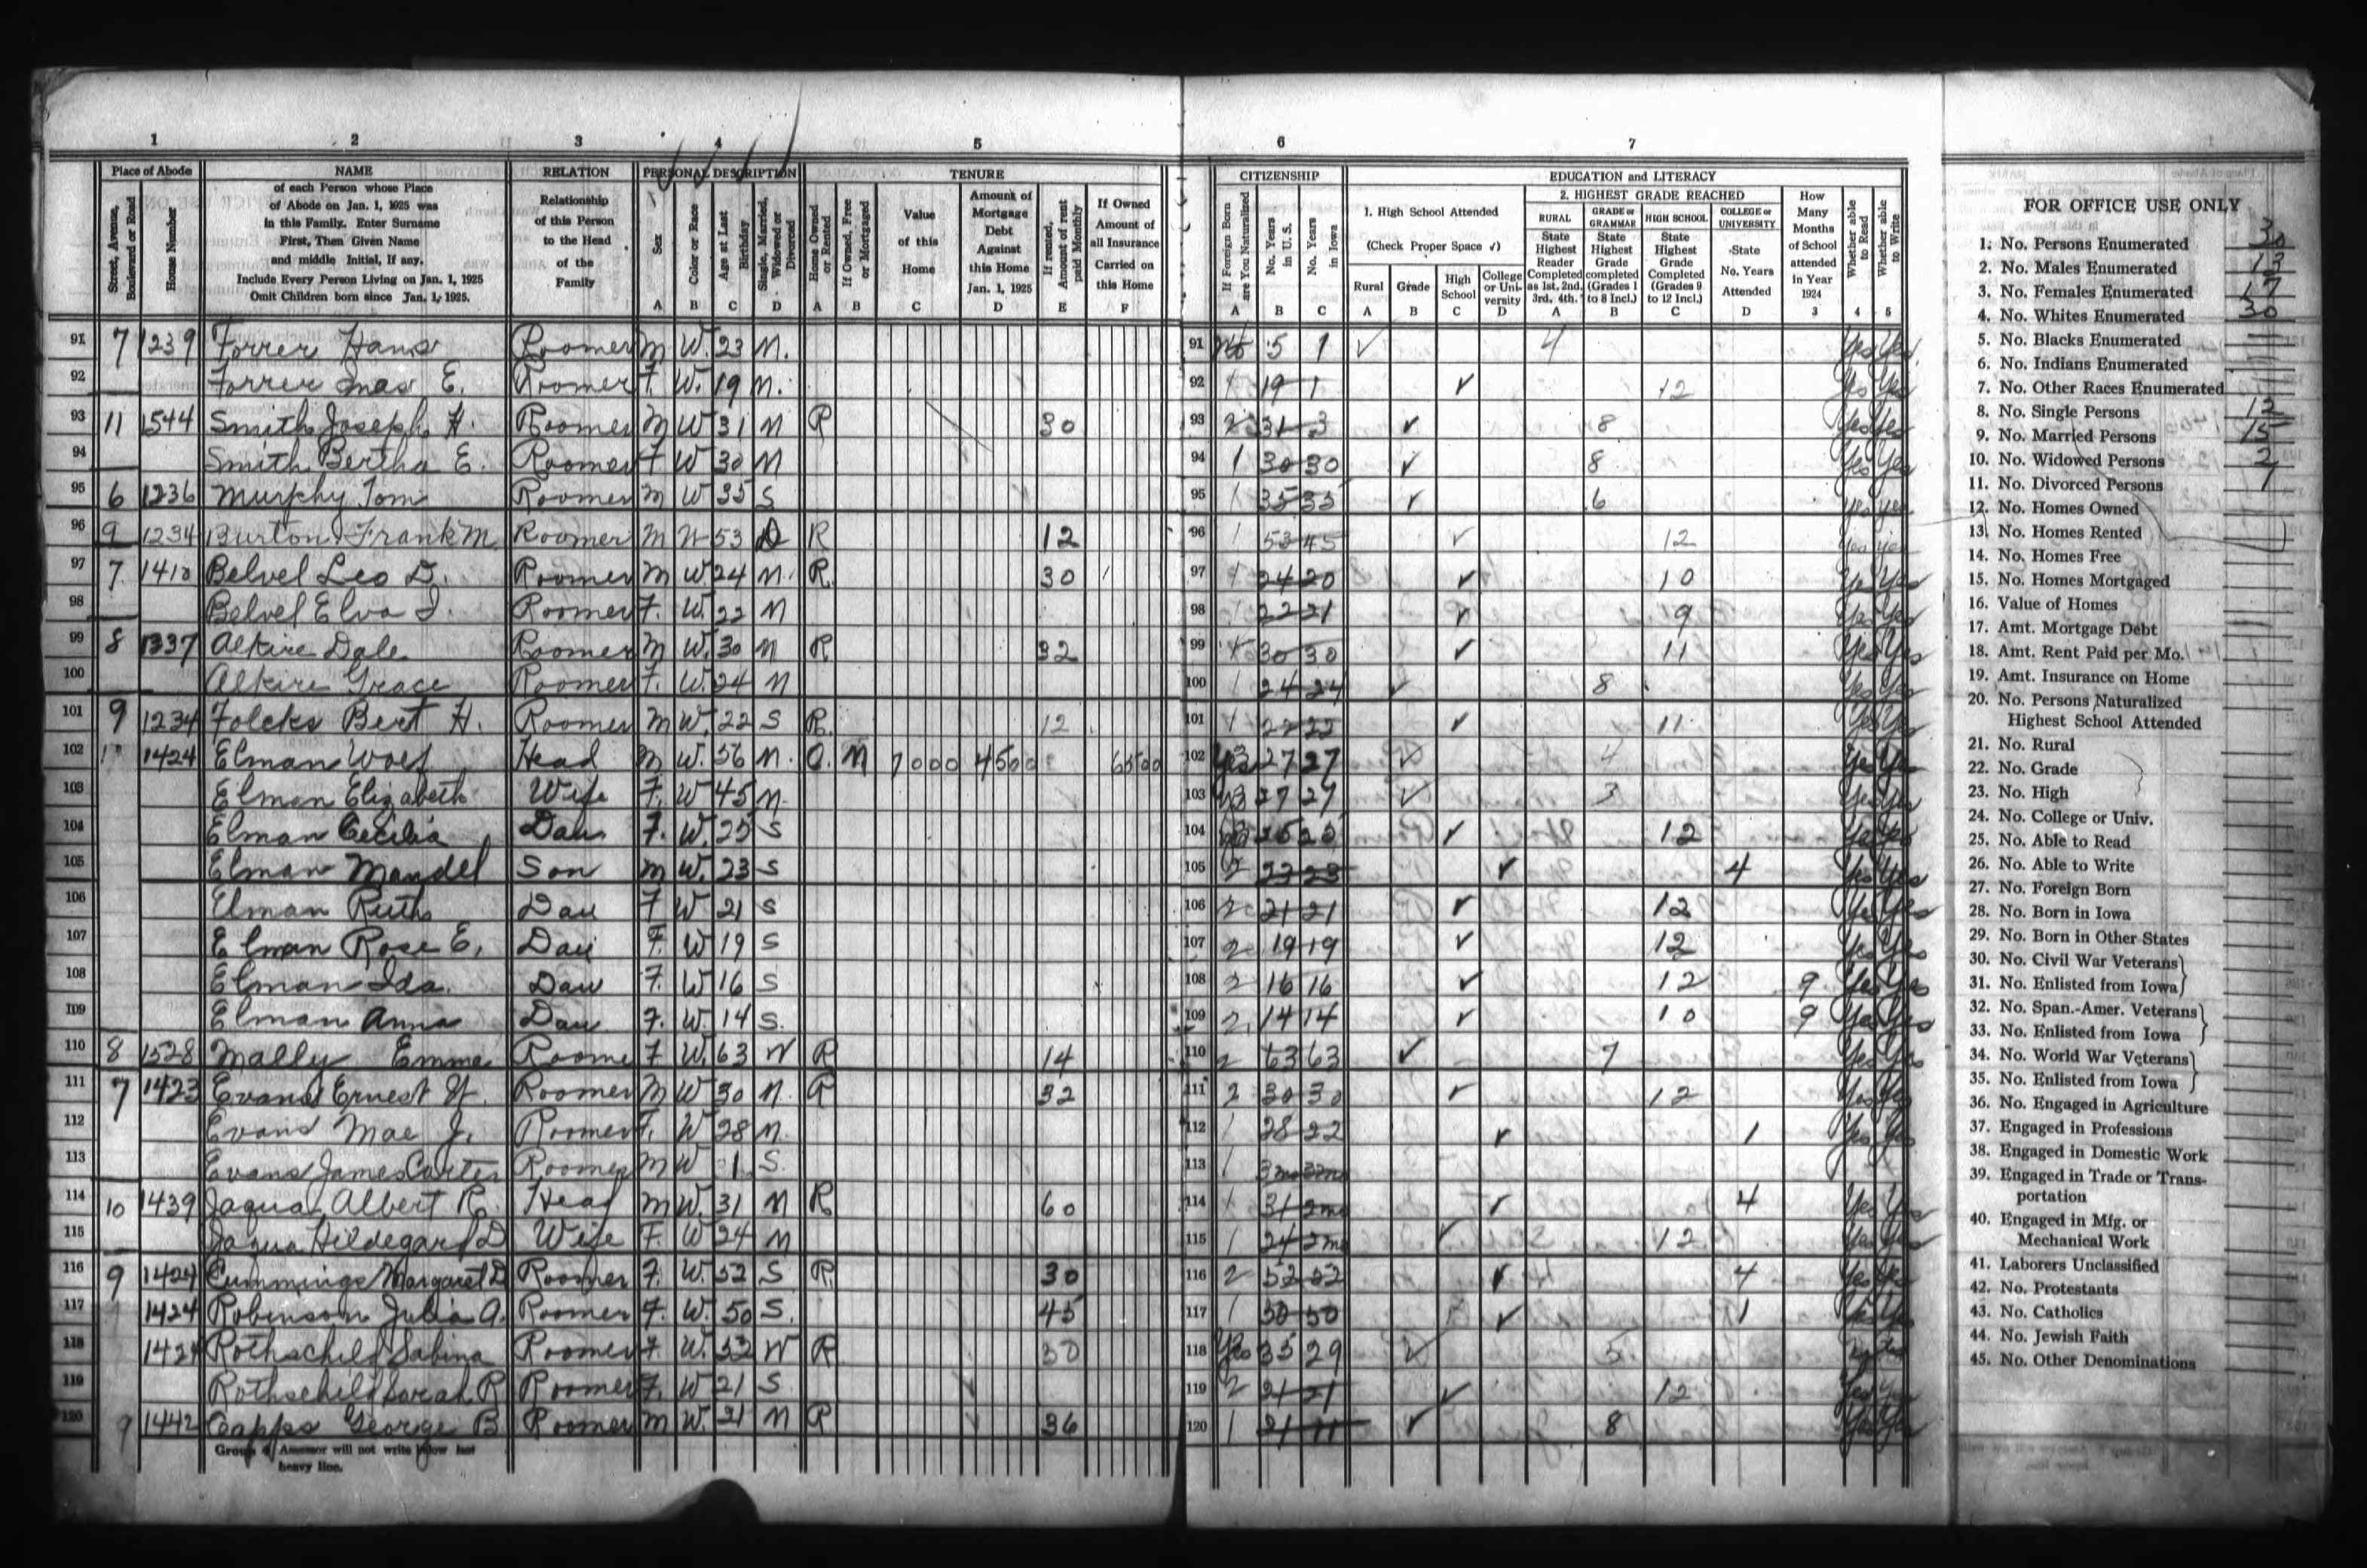 1 2 3 4 5 6 7
Place of Abode NAME RELATION PERSONAL DESCRIPTION TENURE CITIZENSHIP EDUCATION and LITERACY
Street, Avenue, Boulevard or Road
House Number
of each Person whose Place
of Abode on Jan. 1, 1925 was
in this Family. Enter Surname
First, Then Given Name
and middle Initial, if any.
Include Every Person Living on Jan. 1, 1925
Omit Children born since Jan. 1, 1925.
Relationship
of this Person
to the Head
of the
Family
Sex A
Color or Race B
Age at Last Birthday C
Single, Married, Widowed or Divorced D
Home Owned or Rented A
If Owned, Free or Mortgaged B
Value of this Home C
Amount of Mortgage Debt Against this Home Jan. 1, 1925 D
If rented, Amount of rent paid Monthly E
If Owned Amount of all Insurance Carried on this Home F
If Foreign Born are You Naturalized A
No. Years in U. S. B
No. Years in Iowa C
1. High School Attended
(Check Proper Space √)
Rural A
Grade B
High School C
College or University D
2. HIGHEST GRADE REACHED
RURAL State Highest Reader Completed as 1st, 2nd, 3rd, 4th. A
GRADE or GRAMMAR State Highest Grade completed (Grades 1 to 8 Incl.) B
HIGH SCHOOL State Highest Grade Completed (Grades 9 to 12 Incl.) C
COLLEGE or UNIVERSITY State No. Years Attended D
How Many Months of School attended in Year 1924 3
Whether able to Read 4
Whether able to Write 5
91 7 1239 Forrer Hans Roomer M W. 23 M. 91 5 1 √ 4 Yes Yes
92 Forrer E. Roomer F. W. 19 M. 92 1 19 1 √ 12 Yes Yes
93 11 1544 Smith Joseph H. Roomer M W 31 M R 30 93 2 31 3 √ 8 Yes Yes
94 Smith Bertha E. Roomer F W 30 M 94 1 30 30 √ 8 Yes Yes
95 6 1236 Murphy Tom Roomer M W 35 S 95 1 35 35 √ 6 Yes Yes
96 9 1234 Burton Frank M. Roomer M W 53 D R 12 96 1 53 45 √ 12 Yes Yes
97 7 1418 Belvel Leo D. Roomer M W 24 M. R. 30 97 1 24 20 √ 10 Yes Yes
98 Belvel Elva I. Roomer F. W. 22 M 98 1 22 21 √ 9 Yes Yes
99 8 1337 Alkire Dale Roomer M W. 30 M R 32 99 30 30 √ 11 Yes Yes
100 Alkire Grace Roomer F. W. 24 M 100 1 24 24 √ 8 Yes Yes
101 9 1234 Folcks Bert H. Roomer M W. 22 S R. 12 101 1 22 22 √ 11 Yes Yes
102 1424 Elman Wolf Head M W. 56 M. O. M 7000 4500 6500 102 Yes 27 27 √ 4 Yes Yes
103 Elman Elizabeth Wife F. W 45 M. 103 27 27 √ 3 Yes Yes
104 Elman Cecilia Dau F. W. 25 S 104 25 25 √ 12 Yes Yes
105 Elman Mandel Son M W. 23 S 105 2 23 23 √ 4 Yes Yes
106 Elman Ruth Dau F W 21 S 106 2 21 21 √ 12 Yes Yes
107 Elman Rose E. Dau F. W 19 S 107 2 19 19 √ 12 Yes Yes
108 Elman Ida. Dau F. W 16 S 108 2 16 16 √ 12 9 Yes Yes
109 Elman Anna Dau F. W. 14 S. 109 2 14 14 √ 10 9 Yes Yes
110 8 1528 Mally Emma Roome F W. 63 W R 14 110 2 63 63 √ 7 Yes Yes
111 7 1423 Evans Ernest W. Roomer M W 30 M. R 32 111 2 30 30 √ 12 Yes Yes
112 Evans Mae J. Roomer F. W 28 M. 112 1 28 22 √ 1 Yes Yes
113 Evans James Carter Roomer M W 1 S. 113 1 3mo 3mo
114 10 1439 Jaqua Albert R. Head M W. 31 M R 60 114 1 31 2mo √ 4 Yes Yes
115 Jaqua Hildegard D Wife F. W 24 M 115 1 24 2mo √ 12 Yes Yes
116 9 1424 Cummings Margaret D Roomer F. W. 52 S R. 30 116 2 52 52 √ 4 Yes Yes
117 1424 Robinson Julia A. Roomer F. W. 50 S. 45 117 1 50 50 √ 1 Yes Yes
118 1424 Rothschild Sabina Roomer F. W. 52 W R 30 118 Yes 35 29 √ 5 Yes
119 Rothschild Sarah R Roomer F. W 21 S 119 2 21 21 √ 12 Yes Yes
120 9 1442 Capps George B Roomer M W. 21 M R 36 120 1 21 11 √ 8 Yes Yes
Group 4 Assessor will not write below last
heavy line.
FOR OFFICE USE ONLY
1. No. Persons Enumerated 30
2. No. Males Enumerated 13
3. No. Females Enumerated 17
4. No. Whites Enumerated 30
5. No. Blacks Enumerated
6. No. Indians Enumerated
7. No. Other Races Enumerated
8. No. Single Persons 12
9. No. Married Persons 15
10. No. Widowed Persons 2
11. No. Divorced Persons 1
12. No. Homes Owned
13. No. Homes Rented
14. No. Homes Free
15. No. Homes Mortgaged
16. Value of Homes
17. Amt. Mortgage Debt
18. Amt. Rent Paid per Mo.
19. Amt. Insurance on Home
20. No. Persons Naturalized
Highest School Attended
21. No. Rural
22. No. Grade
23. No. High
24. No. College or Univ.
25. No. Able to Read
26. No. Able to Write
27. No. Foreign Born
28. No. Born in Iowa
29. No. Born in Other States
30. No. Civil War Veterans
31. No. Enlisted from Iowa
32. No. Span.-Amer. Veterans
33. No. Enlisted from Iowa
34. No. World War Veterans
35. No. Enlisted from Iowa
36. No. Engaged in Agriculture
37. Engaged in Professions
38. Engaged in Domestic Work
39. Engaged in Trade or Trans-
portation
40. Engaged in Mfg. or
Mechanical Work
41. Laborers Unclassified
42. No. Protestants
43. No. Catholics
44. No. Jewish Faith
45. No. Other Denominations